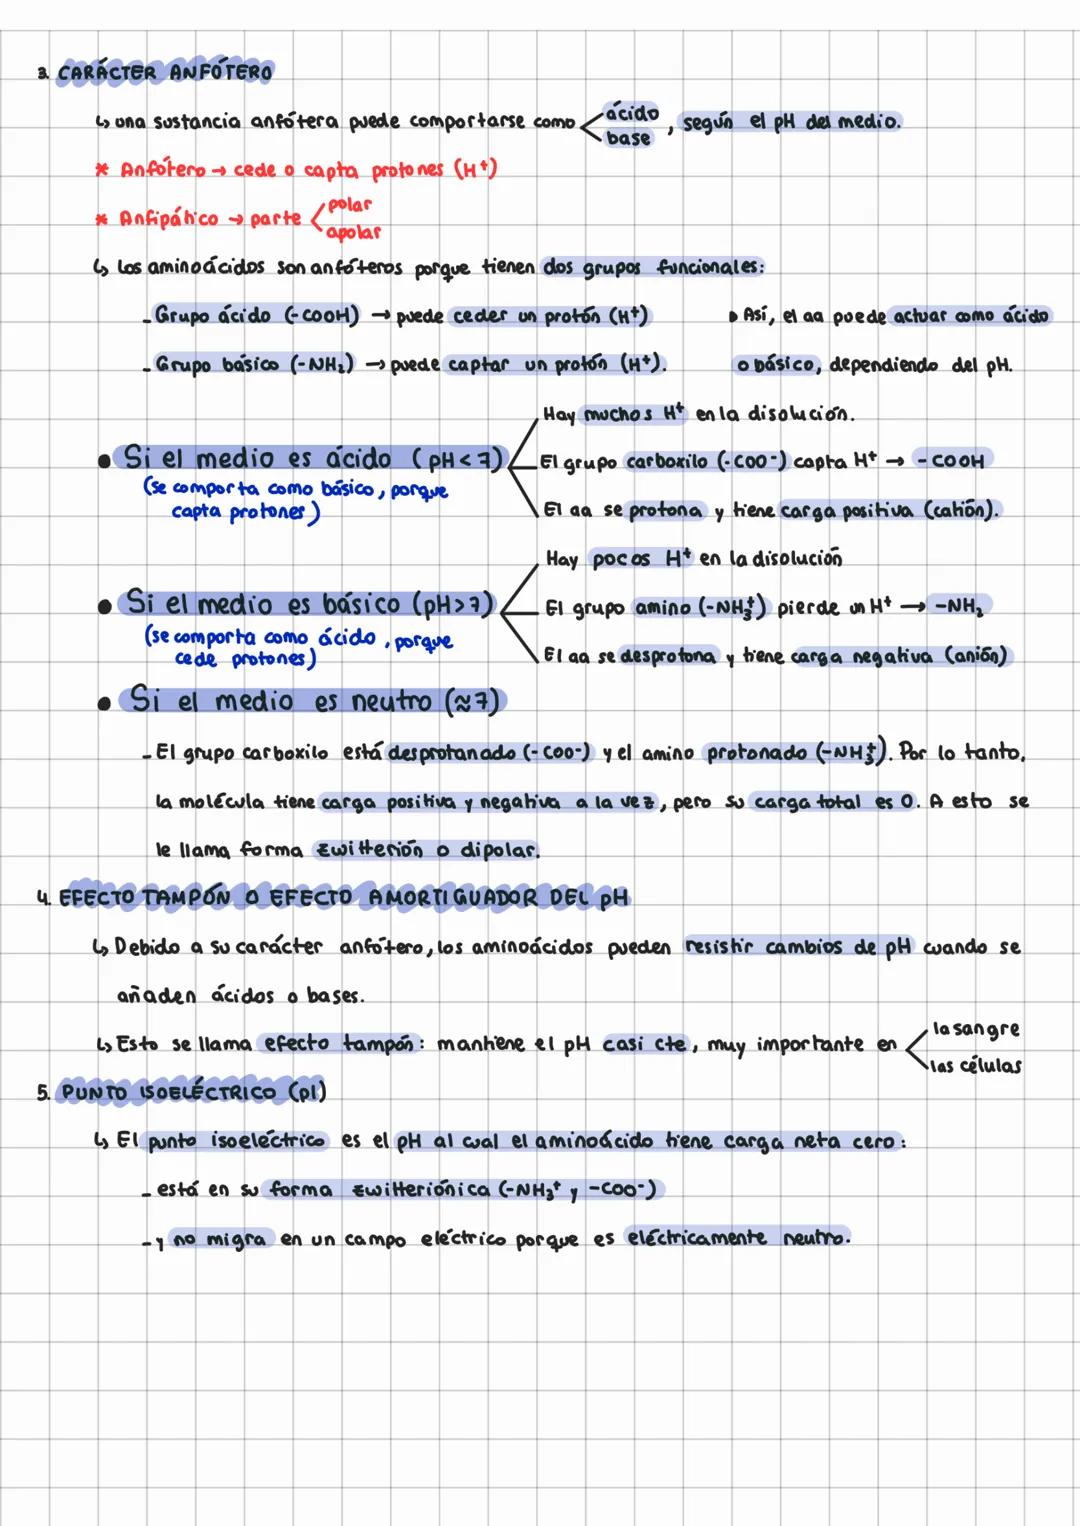 3. CARÁCTER ANFÓTERO
↳ una sustancia anfótera puede comportarse como < ácido
base , según el pH del medio.
* Anfótero → cede o capta protones (H⁺)
* Anfipático → parte < polar
apolar
↳ Los aminoácidos son anfóteros porque tienen dos grupos funcionales:
- Grupo ácido (-COOH) → puede ceder un protón (H⁺)
- Grupo básico (-NH₂) → puede captar un protón (H⁺).
▸ Así, el aa puede actuar como ácido
o básico, dependiendo del pH.
• Si el medio es ácido (pH<7)
(se comporta como básico, porque
capta protones)
Hay muchos H⁺ en la disolución.
El grupo carboxilo (-COO⁻) capta H⁺ → -COOH
El aa se protona y tiene carga positiva (catión).
• Si el medio es básico (pH>7)
(se comporta como ácido, porque
cede protones)
Hay pocos H⁺ en la disolución
El grupo amino (-NH₃⁺) pierde un H⁺ → -NH₂
El aa se desprotona y tiene carga negativa (anión)
• Si el medio es neutro (≈7)
- El grupo carboxilo está desprotanado (-COO⁻) y el amino protonado (-NH₃⁺). Por lo tanto,
la molécula tiene carga positiva y negativa a la vez, pero su carga total es 0. A esto se
le llama forma zwitterión o dipolar.
4. EFECTO TAMPÓN O EFECTO AMORTIGUADOR DEL pH
↳ Debido a su carácter anfótero, los aminoácidos pueden resistir cambios de pH cuando se
añaden ácidos o bases.
↳ Esto se llama efecto tampón: mantiene el pH casi cte, muy importante en < la sangre
las células
5. PUNTO ISOELÉCTRICO (pI)
↳ El punto isoeléctrico es el pH al cual el aminoácido tiene carga neta cero:
- está en su forma zwitteriónica (-NH₃⁺ y -COO⁻)
- y no migra en un campo eléctrico porque es eléctricamente neutro.